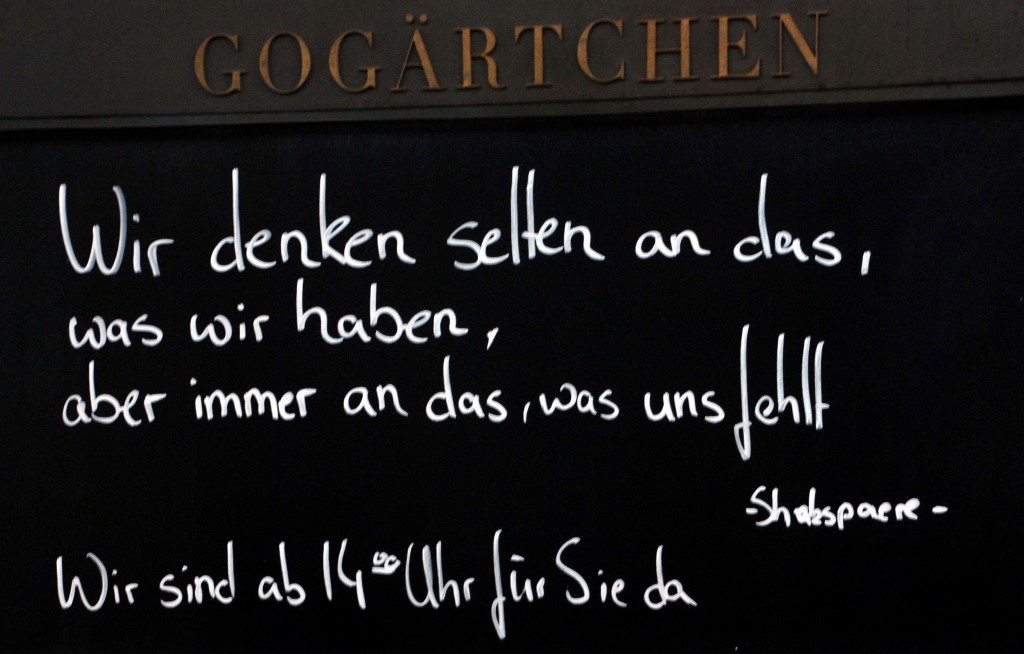 GOGÄRTCHEN
Wir denken selten an das,
was wir haben,
aber immer an das, was uns fehlt
-Shakspaere-
Wir sind ab 14⁰⁰ Uhr für Sie da